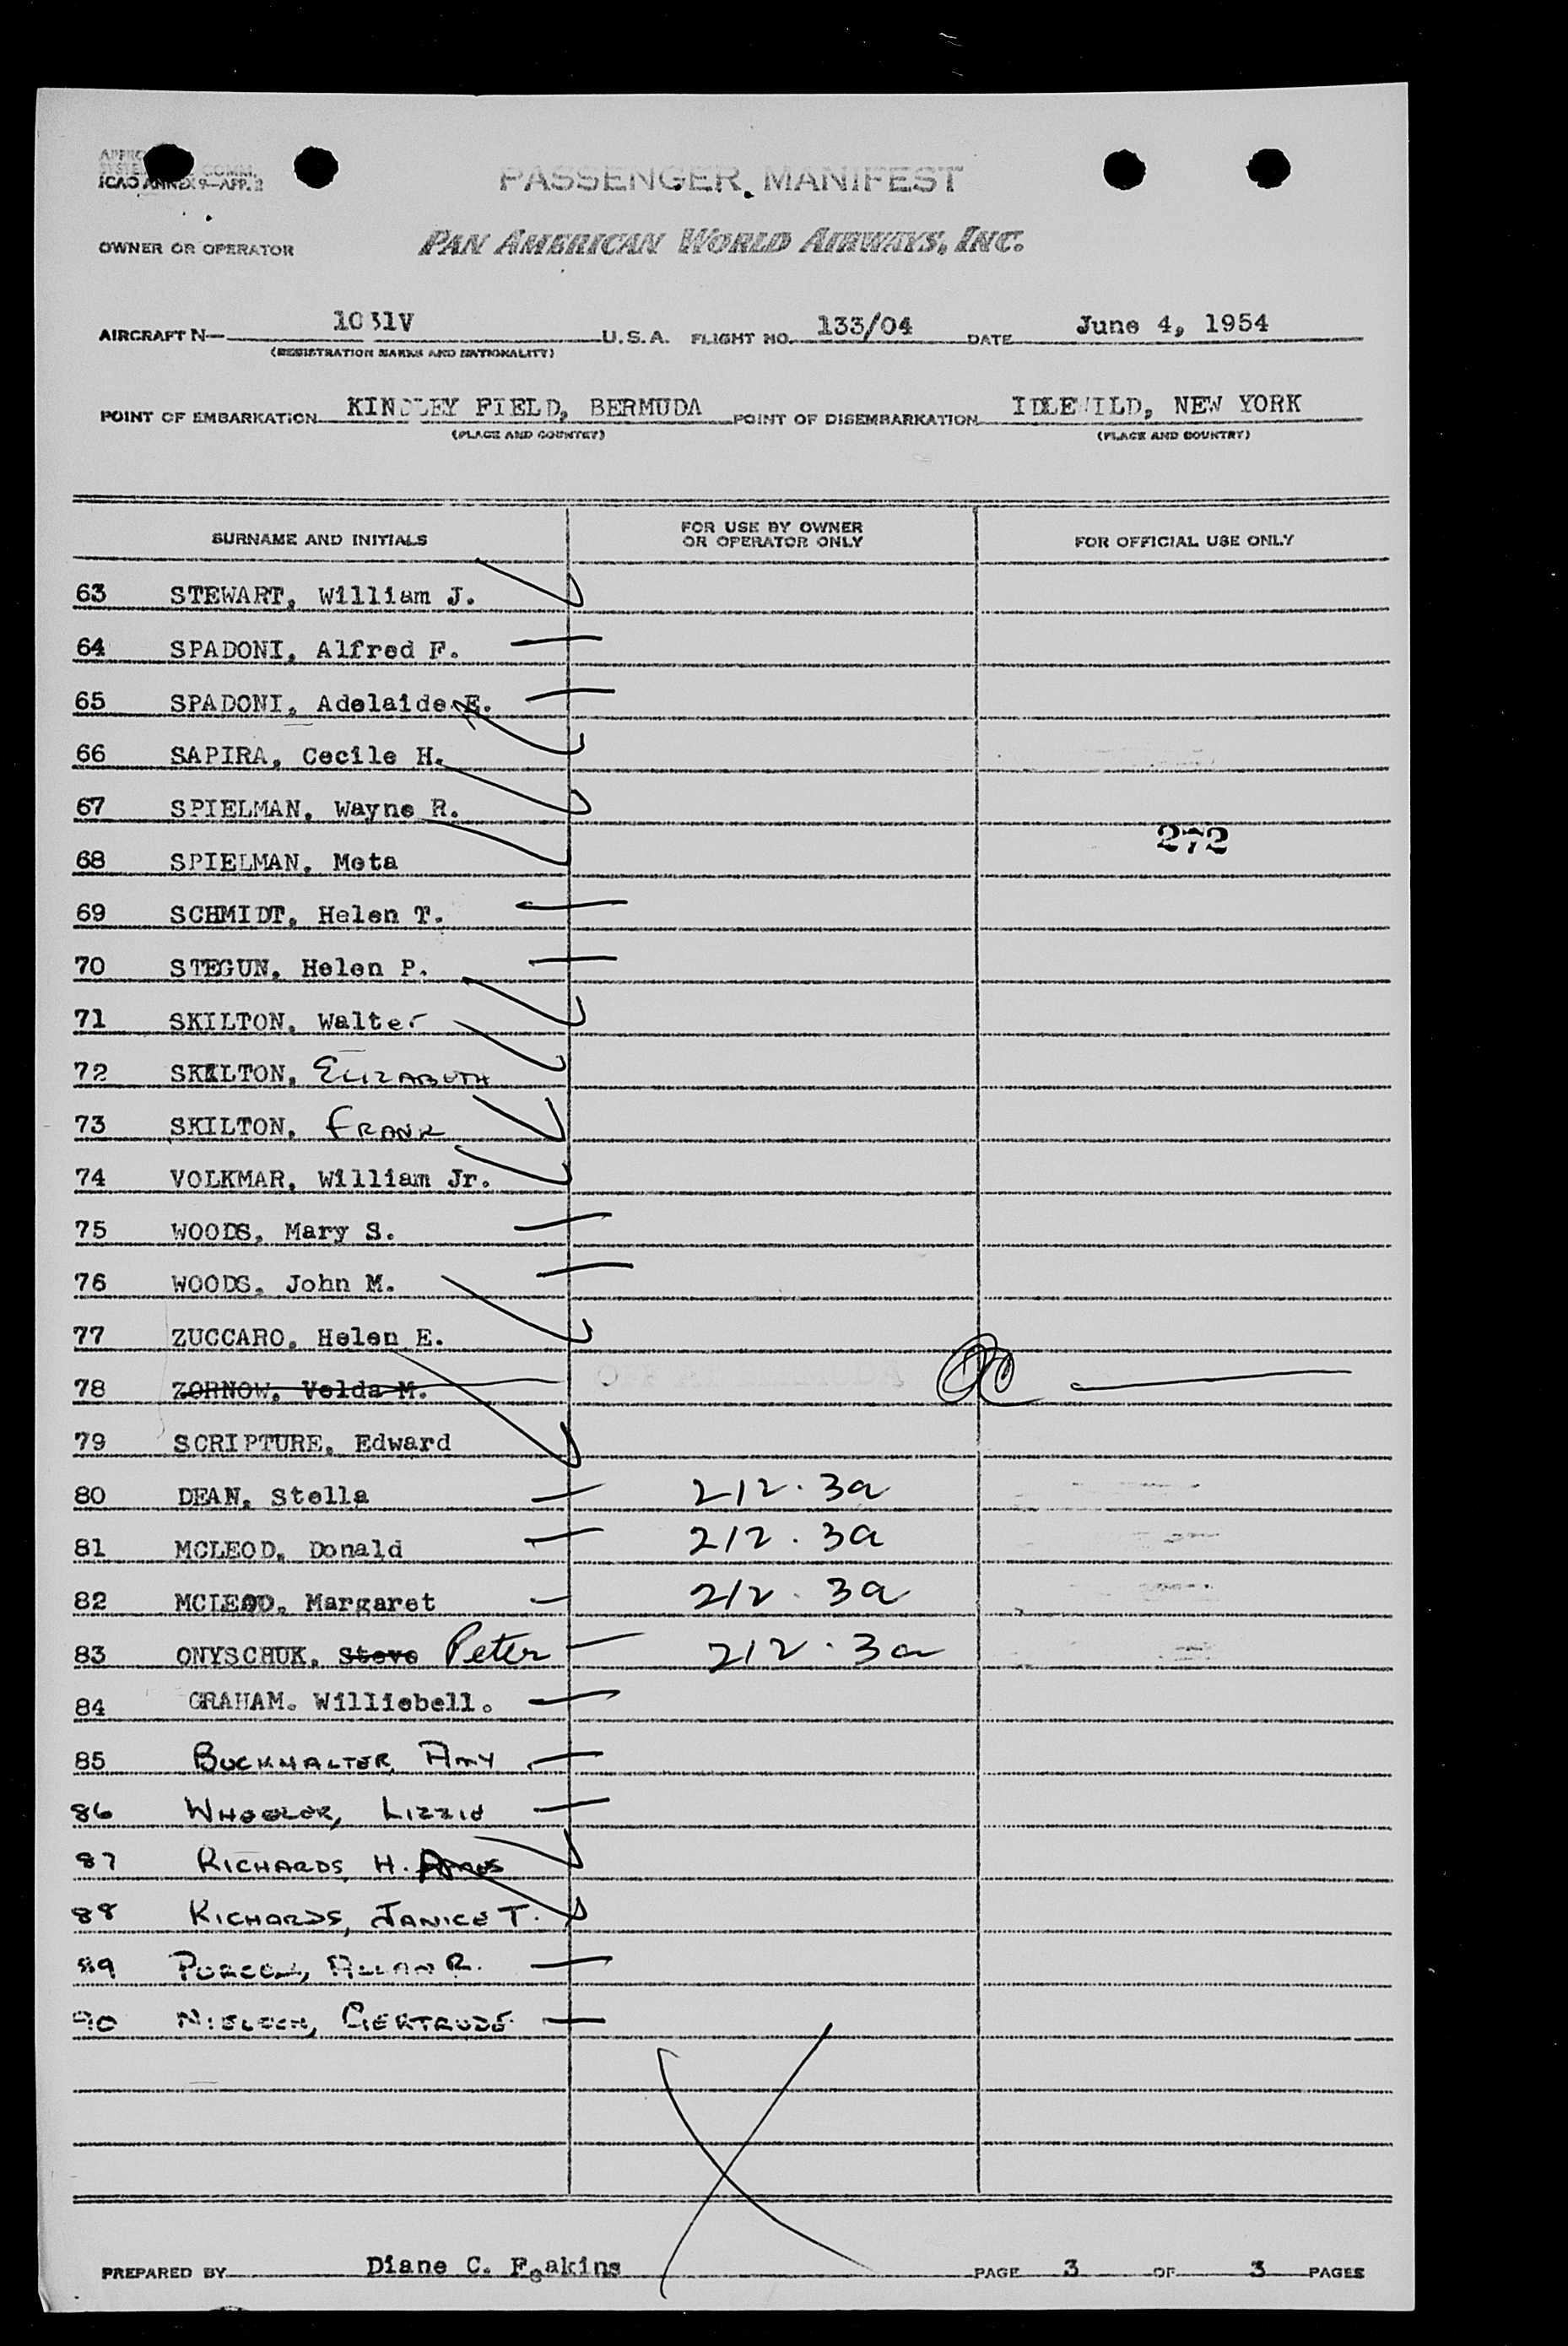 ICAO ANNEX 9—APP. 2
PASSENGER MANIFEST
OWNER OR OPERATOR PAN AMERICAN WORLD AIRWAYS, INC.
AIRCRAFT N— 1031V U.S.A. FLIGHT NO. 133/04 DATE June 4, 1954
(REGISTRATION MARKS AND NATIONALITY)
POINT OF EMBARKATION KINDLEY FIELD, BERMUDA POINT OF DISEMBARKATION IDLEWILD, NEW YORK
(PLACE AND COUNTRY) (PLACE AND COUNTRY)
SURNAME AND INITIALS FOR USE BY OWNER OR OPERATOR ONLY FOR OFFICIAL USE ONLY
63 STEWART, William J.
64 SPADONI, Alfred F.
65 SPADONI, Adelaide E.
66 SAPIRA, Cecile H.
67 SPIELMAN, Wayne R.
272
68 SPIELMAN, Meta
69 SCHMIDT, Helen T.
70 STEGUN, Helen P.
71 SKILTON, Walter
72 SKILTON, ELIZABETH
73 SKILTON, FRANK
74 VOLKMAR, William Jr.
75 WOODS, Mary S.
76 WOODS, John M.
77 ZUCCARO, Helen E.
78 ZORNOW, Velda M.
79 SCRIPTURE, Edward
80 DEAN, Stella 212.3a
81 MCLEOD, Donald 212.3a
82 MCLEOD, Margaret 212.3a
83 ONYSCHUK, Steve Peter 212.3a
84 GRAHAM. Williebell.
85 BUCKHALTER, AMY
86 WHEELER, LIZZIE
87 RICHARDS, H. AMOS
88 RICHARDS, JANICE T.
89 PURCELL, ALLAN R.
90 NIELSEN, GERTRUDE
PREPARED BY Diane C. Feakins PAGE 3 OF 3 PAGES